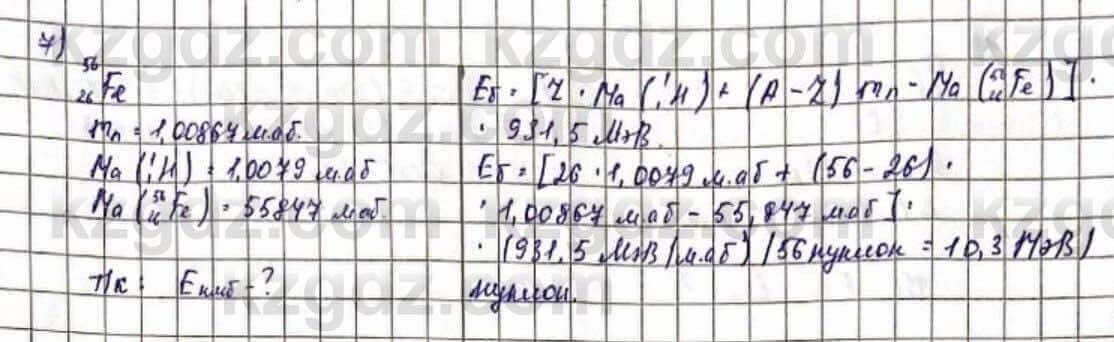 7)
⁵⁶₂₆Fe
mₙ = 1,00867 м.а.б.
Ma (¹₁H) = 1,0079 м.а.б
Ma (⁵⁶₂₆Fe) = 55,847 м.а.б.
Т/к: Eмб - ?
Eб = [Z · Ma (¹₁H) + (A - Z) mₙ - Ma (⁵⁶₂₆Fe)] ·
· 931,5 МэВ.
Eб = [26 · 1,0079 м.а.б + (56 - 26) ·
· 1,00867 м.а.б - 55,847 м.а.б] ·
· (931,5 МэВ/м.а.б) / 56 нуклон = 10,3 МэВ/
нуклон.
kzgdz.com